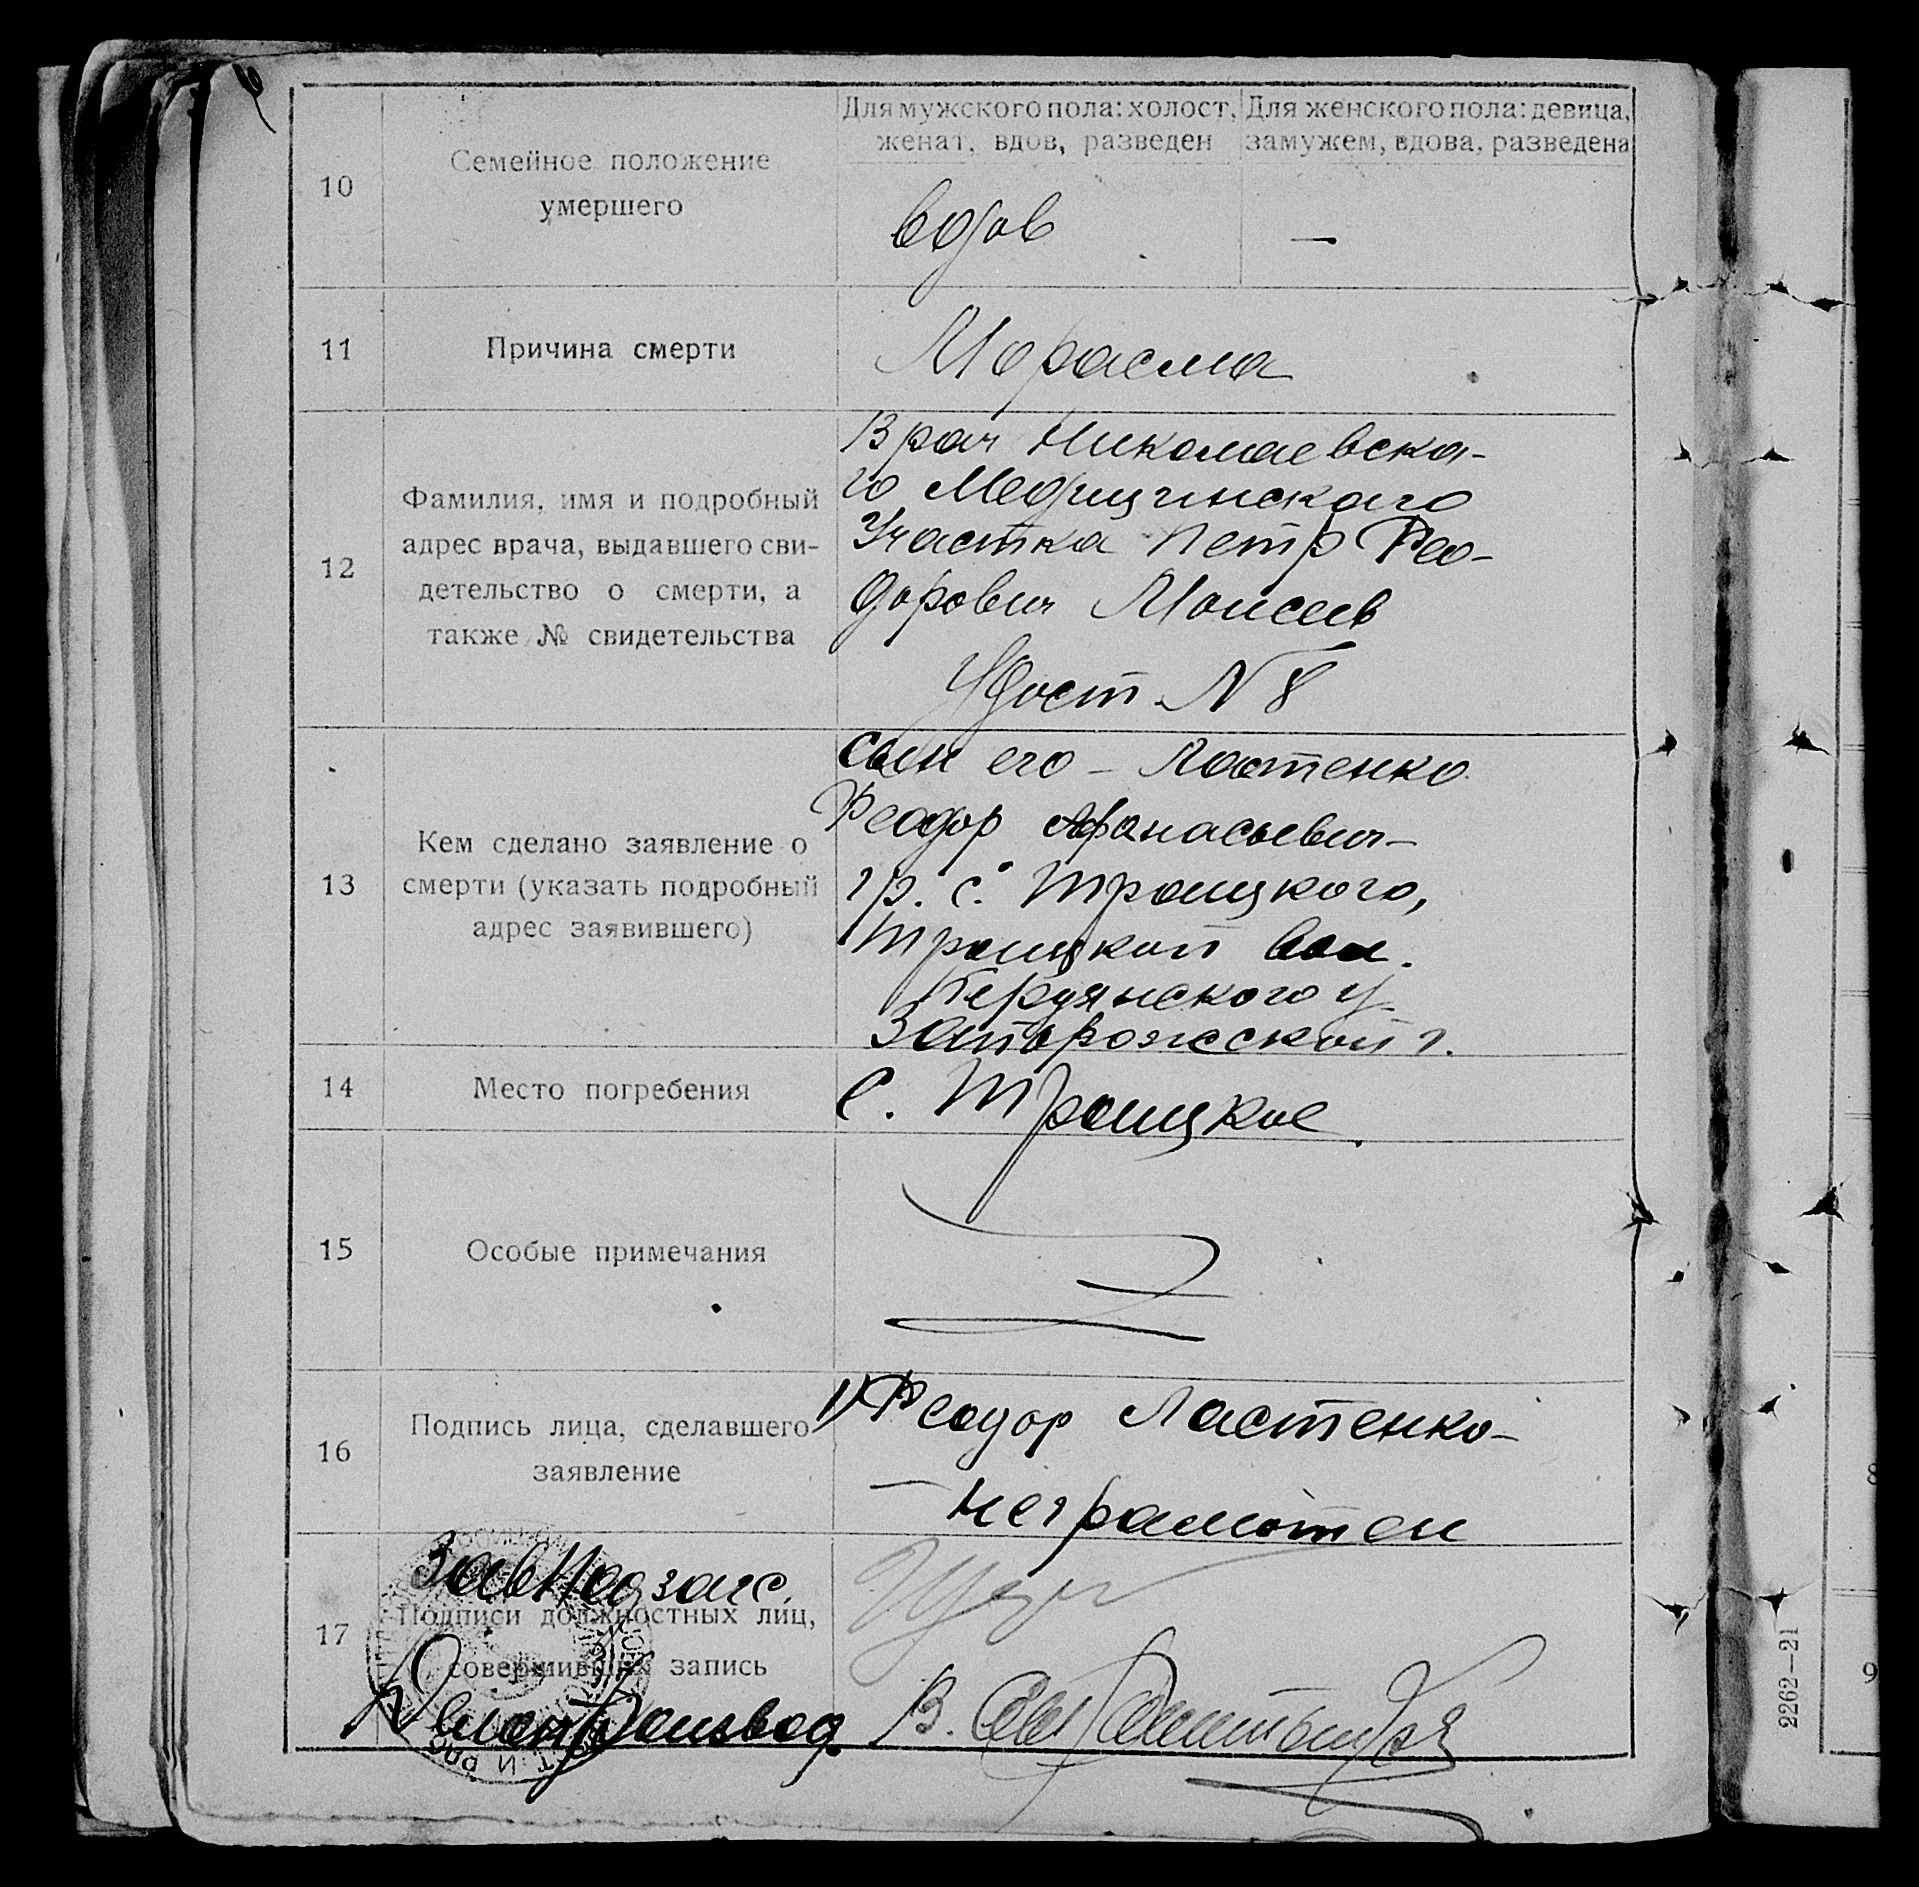 Для мужского пола: холост, женат, вдов, разведен
Для женского пола: девица, замужем, вдова, разведена
10
Семейное положение
умершего
вдов
—
11
Причина смерти
Морасма
12
Фамилия, имя и подробный
адрес врача, выдавшего сви-
детельство о смерти, а
также № свидетельства
Врач Николаевска-
го Медицинскаго
Участка Петр Фео-
дорович Моисеев
Удост N 8
13
Кем сделано заявление о
смерти (указать подробный
адрес заявившего)
сын его – Ластенко
Феодор Афанасьевич –
гр. с. Троицкого,
Троицкой вол.
Бердянского у
Запорожской г.
14
Место погребения
С. Троицкое.
15
Особые примечания
16
Подпись лица, сделавшего
заявление
1) Феодор Ластенко –
– неграмотен
17
Подписи должностных лиц,
совершивших запись
ЗавПодзагс.
Делопроизвод.
В.
2262–21
8
9